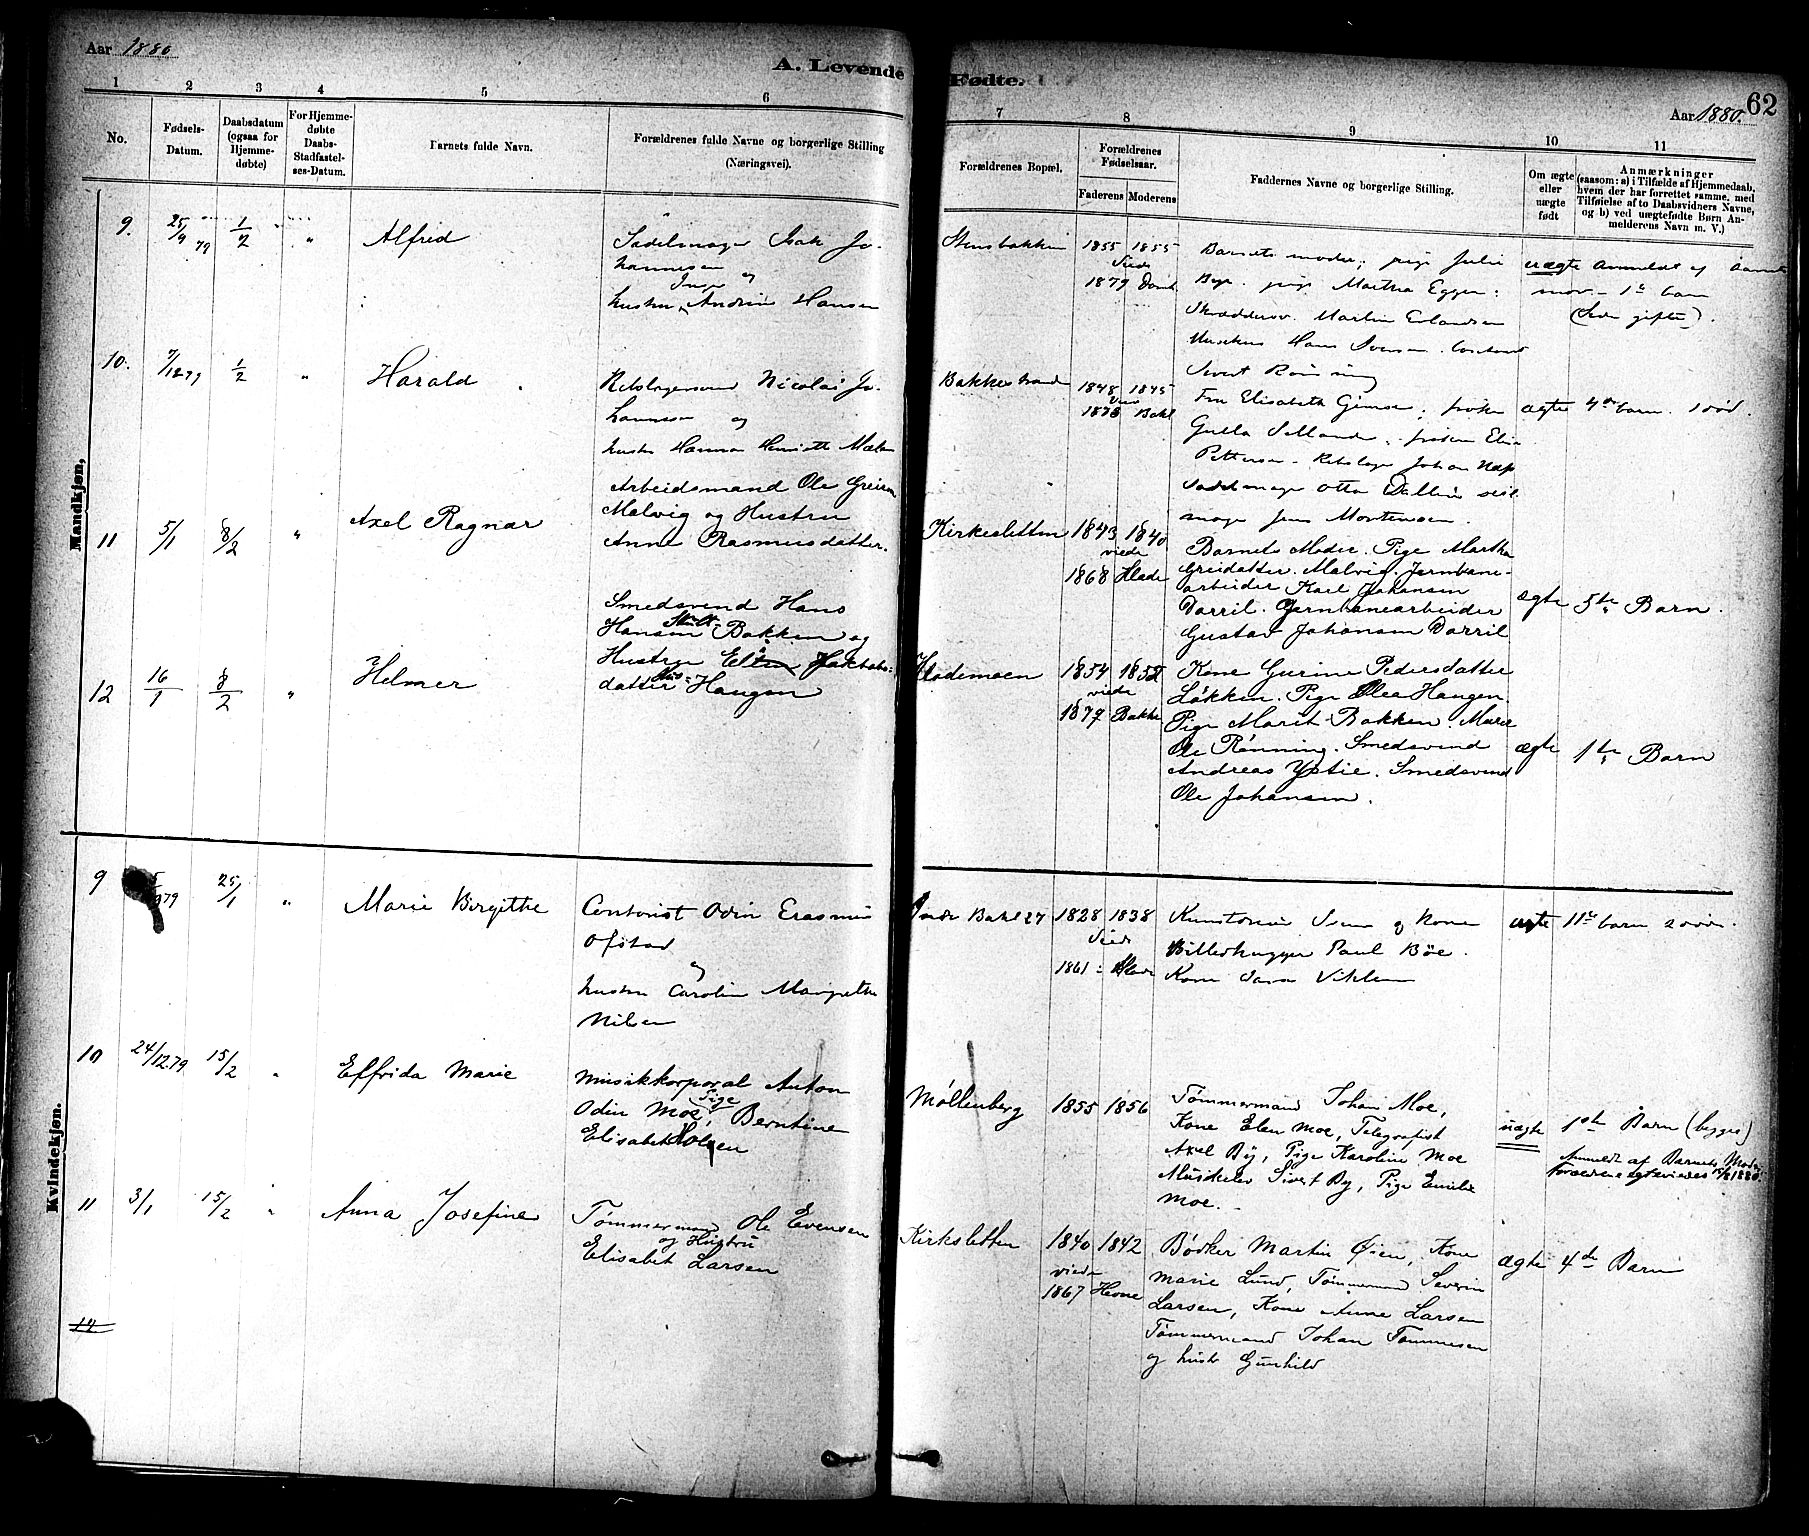 Aar 1880
A. Levende Fødte.
62
Aar 1880.
1 2 3 4 5 6 7 8 9 10 11
No.
Fødsels-Datum.
Daabsdatum (ogsaa for Hjemme-døbte)
For Hjemme-døbte Daabs-Stadfæstel-ses-Datum.
Barnets fulde Navn.
Forældrenes fulde Navne og borgerlige Stilling (Næringsvei).
Forældrenes Bopæl.
Forældrenes Fødselsaar.
Faderens Moderens
Faddernes Navne og borgerlige Stilling.
Om ægte eller uægte født
Anmærkninger (saasom: a) i Tilfælde af Hjemmedaab, hvem der har forrettet samme, med Tilføielse af to Daabsvidners Navne, og b) ved uægtefødte Børn An-melderens Navn m. V.)
Mandkjøn,
9. 25/9 79 1/2 " Alfred
Sadelmager Isak Jo-
hannesen og
hustru Inga Andrine Hansen
1855 1855
Viede
1879 Domk
Barnets moder, pige Julie
Bye. pige Martha Eggen.
Skræddersv. Martin Erlandsen
Hans Iversen.
uægte anmeldt af barnets
mor. 1ste barn
10. 7/12 79 1/2 " Harald
Nicolai Jo-
hannesen og
hustru Hanna Henriette
Bakkestrand
1848 1845
Viede
1873 Bakl
Sivert Rønning
Fru Elisabeth Gimse, frøken
Gulla Selland, frøken
Pettersen. Johan Næss
Otto Dallin seil
mager Jens Mortensen.
ægte 4de barn. 1 død.
11 5/1 8/2 " Axel Ragnar
Arbeidsmand Ole Greisen
Malvig og Hustru
Anne Rasmusdatter.
Kirkesletten
1843 1840
viede
1868 Hlade
Barnets Moder. Pige Martha
Greidatter. Malvig. Jernbane-
arbeider Karl Johansen
Dorril. Jernbanearbeider
Gustav Johansen Dorril
ægte 5te Barn.
12 16/1 8/2 " Helmer
Smedsvend Hans
Hansen Bakken og
Hustrue Jakobs-
datter Haugen
Hlademoen
1854 1852
viede
1879 Bakke
Kone Gurine Pedersdatter
Løkken. Pige Olea Haugen.
Pige Marit Bakken.
Ole Rønning. Smedsvend
Andreas Ystie. Smedsvend
Ole Johansen.
ægte 1te Barn
Kvindekjøn.
9 79 25/1 " Marie Birgitte
Contorist Odin Erasmus
Ofstad
og
hustru Caroline Margrethe
Nilsen
Indr Bakl 27
1828 1838
Viede
1861 Hlade
og kone
Billedhugger Paul Böe.
Kone Sara Viklem
ægte 11te barn 2 døde.
10 24/12.79 15/2 " Effrida Marie
Musikkorporal Anton
Odin Moe, Pige Berntine
Elisabet Holsen
Møllenberg
1855 1856
Tømmermand Johan Moe,
Kone Elen Moe, Telegrafist
Axel By, Pige Karoline Moe
Musikelev Sivert By, Pige Emilie
Moe.
uægte
1ste Barn (begges)
Anmeldt af Barnets Moder
1880.
11 3/1 15/2 " Anna Josefine
Tømmermand Ole Evensen
og Hustru
Elisabet Larsen
Kirksletten
1840 1842
viede
1867 Hevne
Bødker Martin Øien, Kone
Marie Lund, Tømmermand Severin
Larsen, Kone Anne Larsen
Tømmermand Johan Tømmesen
og hustr Gunhild
ægte 4de Barn
12